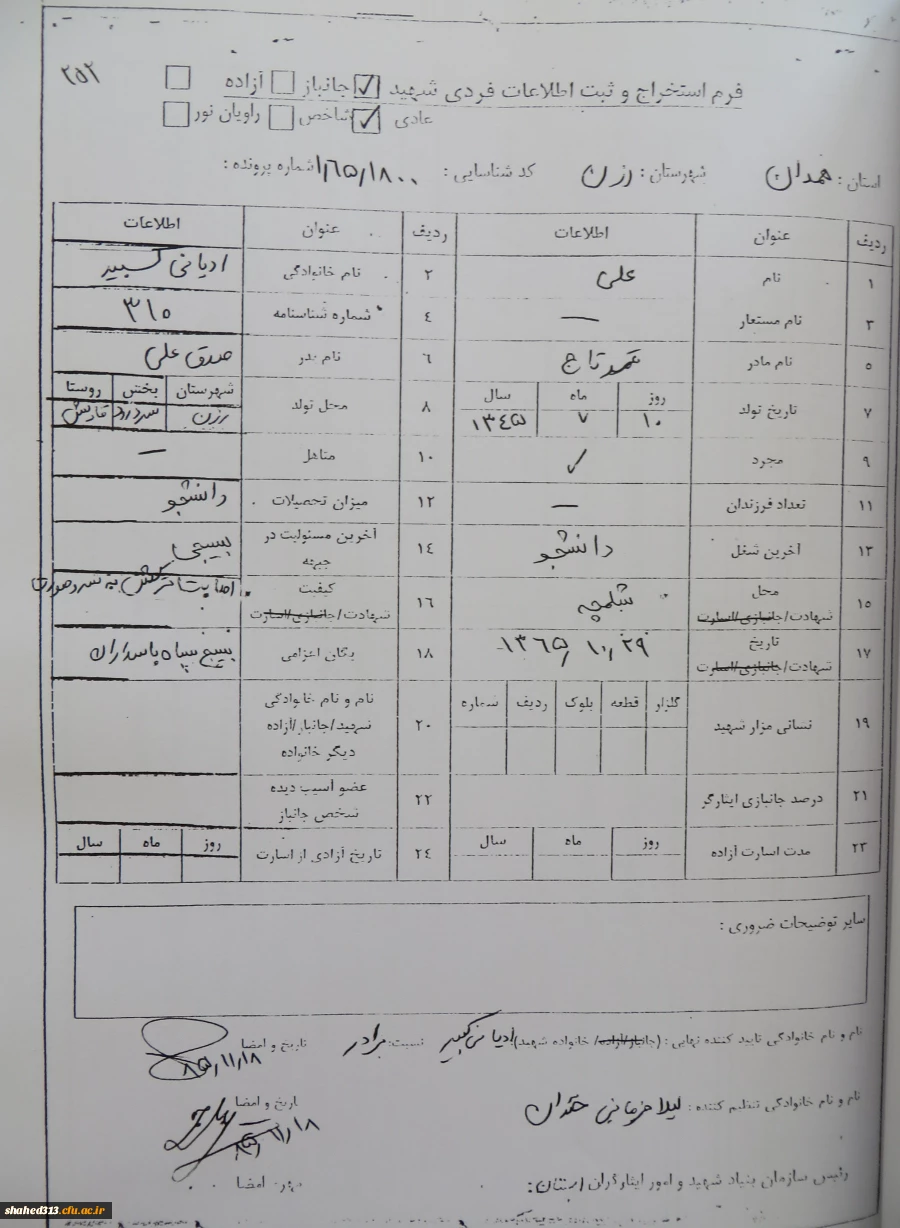 ۲۵۲
فرم استخراج و ثبت اطلاعات فردی شهید ✓ جانباز آزاده
عادی ✓ شاخص راویان نور
استان : همدان شهرستان : رزن کد شناسایی : شماره پرونده : ۱/۶۵/۱۸۰۰
ردیف عنوان اطلاعات ردیف عنوان اطلاعات
۱ نام علی ۲ نام خانوادگی ادیانی کبیر
۳ نام مستعار — ۴ شماره شناسنامه ۳۱۰
۵ نام مادر ۶ نام پدر صدق علی
۷ تاریخ تولد روز ماه سال ۸ محل تولد شهرستان بخش روستا
۱۰ ۷ ۱۳۴۵ رزن سردرود
۹ مجرد ✓ ۱۰ متاهل —
۱۱ تعداد فرزندان — ۱۲ میزان تحصیلات دانشجو
۱۳ آخرین شغل دانشجو ۱۴ آخرین مسئولیت در جبهه بسیجی
۱۵ محل شهادت/جانبازی/اسارت شلمچه ۱۶ کیفیت شهادت/جانبازی/اسارت اصابت ترکش به سر و صورت
۱۷ تاریخ شهادت/جانبازی/اسارت ۱۳۶۵/۱۰/۲۹ ۱۸ یگان اعزامی بسیج سپاه پاسداران
۱۹ نشانی مزار شهید گلزار قطعه بلوک ردیف شماره ۲۰ نام و نام خانوادگی شهید/جانباز/آزاده دیگر خانواده
۲۱ درصد جانبازی ایثارگر ۲۲ عضو آسیب دیده شخص جانباز
۲۳ مدت اسارت آزاده روز ماه سال ۲۴ تاریخ آزادی از اسارت روز ماه سال
سایر توضیحات ضروری :
نام و نام خانوادگی تایید کننده نهایی : (جانباز/آزاده/ خانواده شهید) ادیانی کبیر نسبت: برادر تاریخ و امضا
۸۵/۱۱/۱۸
نام و نام خانوادگی تنظیم کننده : لیلا تاریخ و امضا
۸۵/۱۱/۱۸
رئیس سازمان بنیاد شهید و امور ایثارگران استان: مهر و امضا
shahed313.cfu.ac.ir